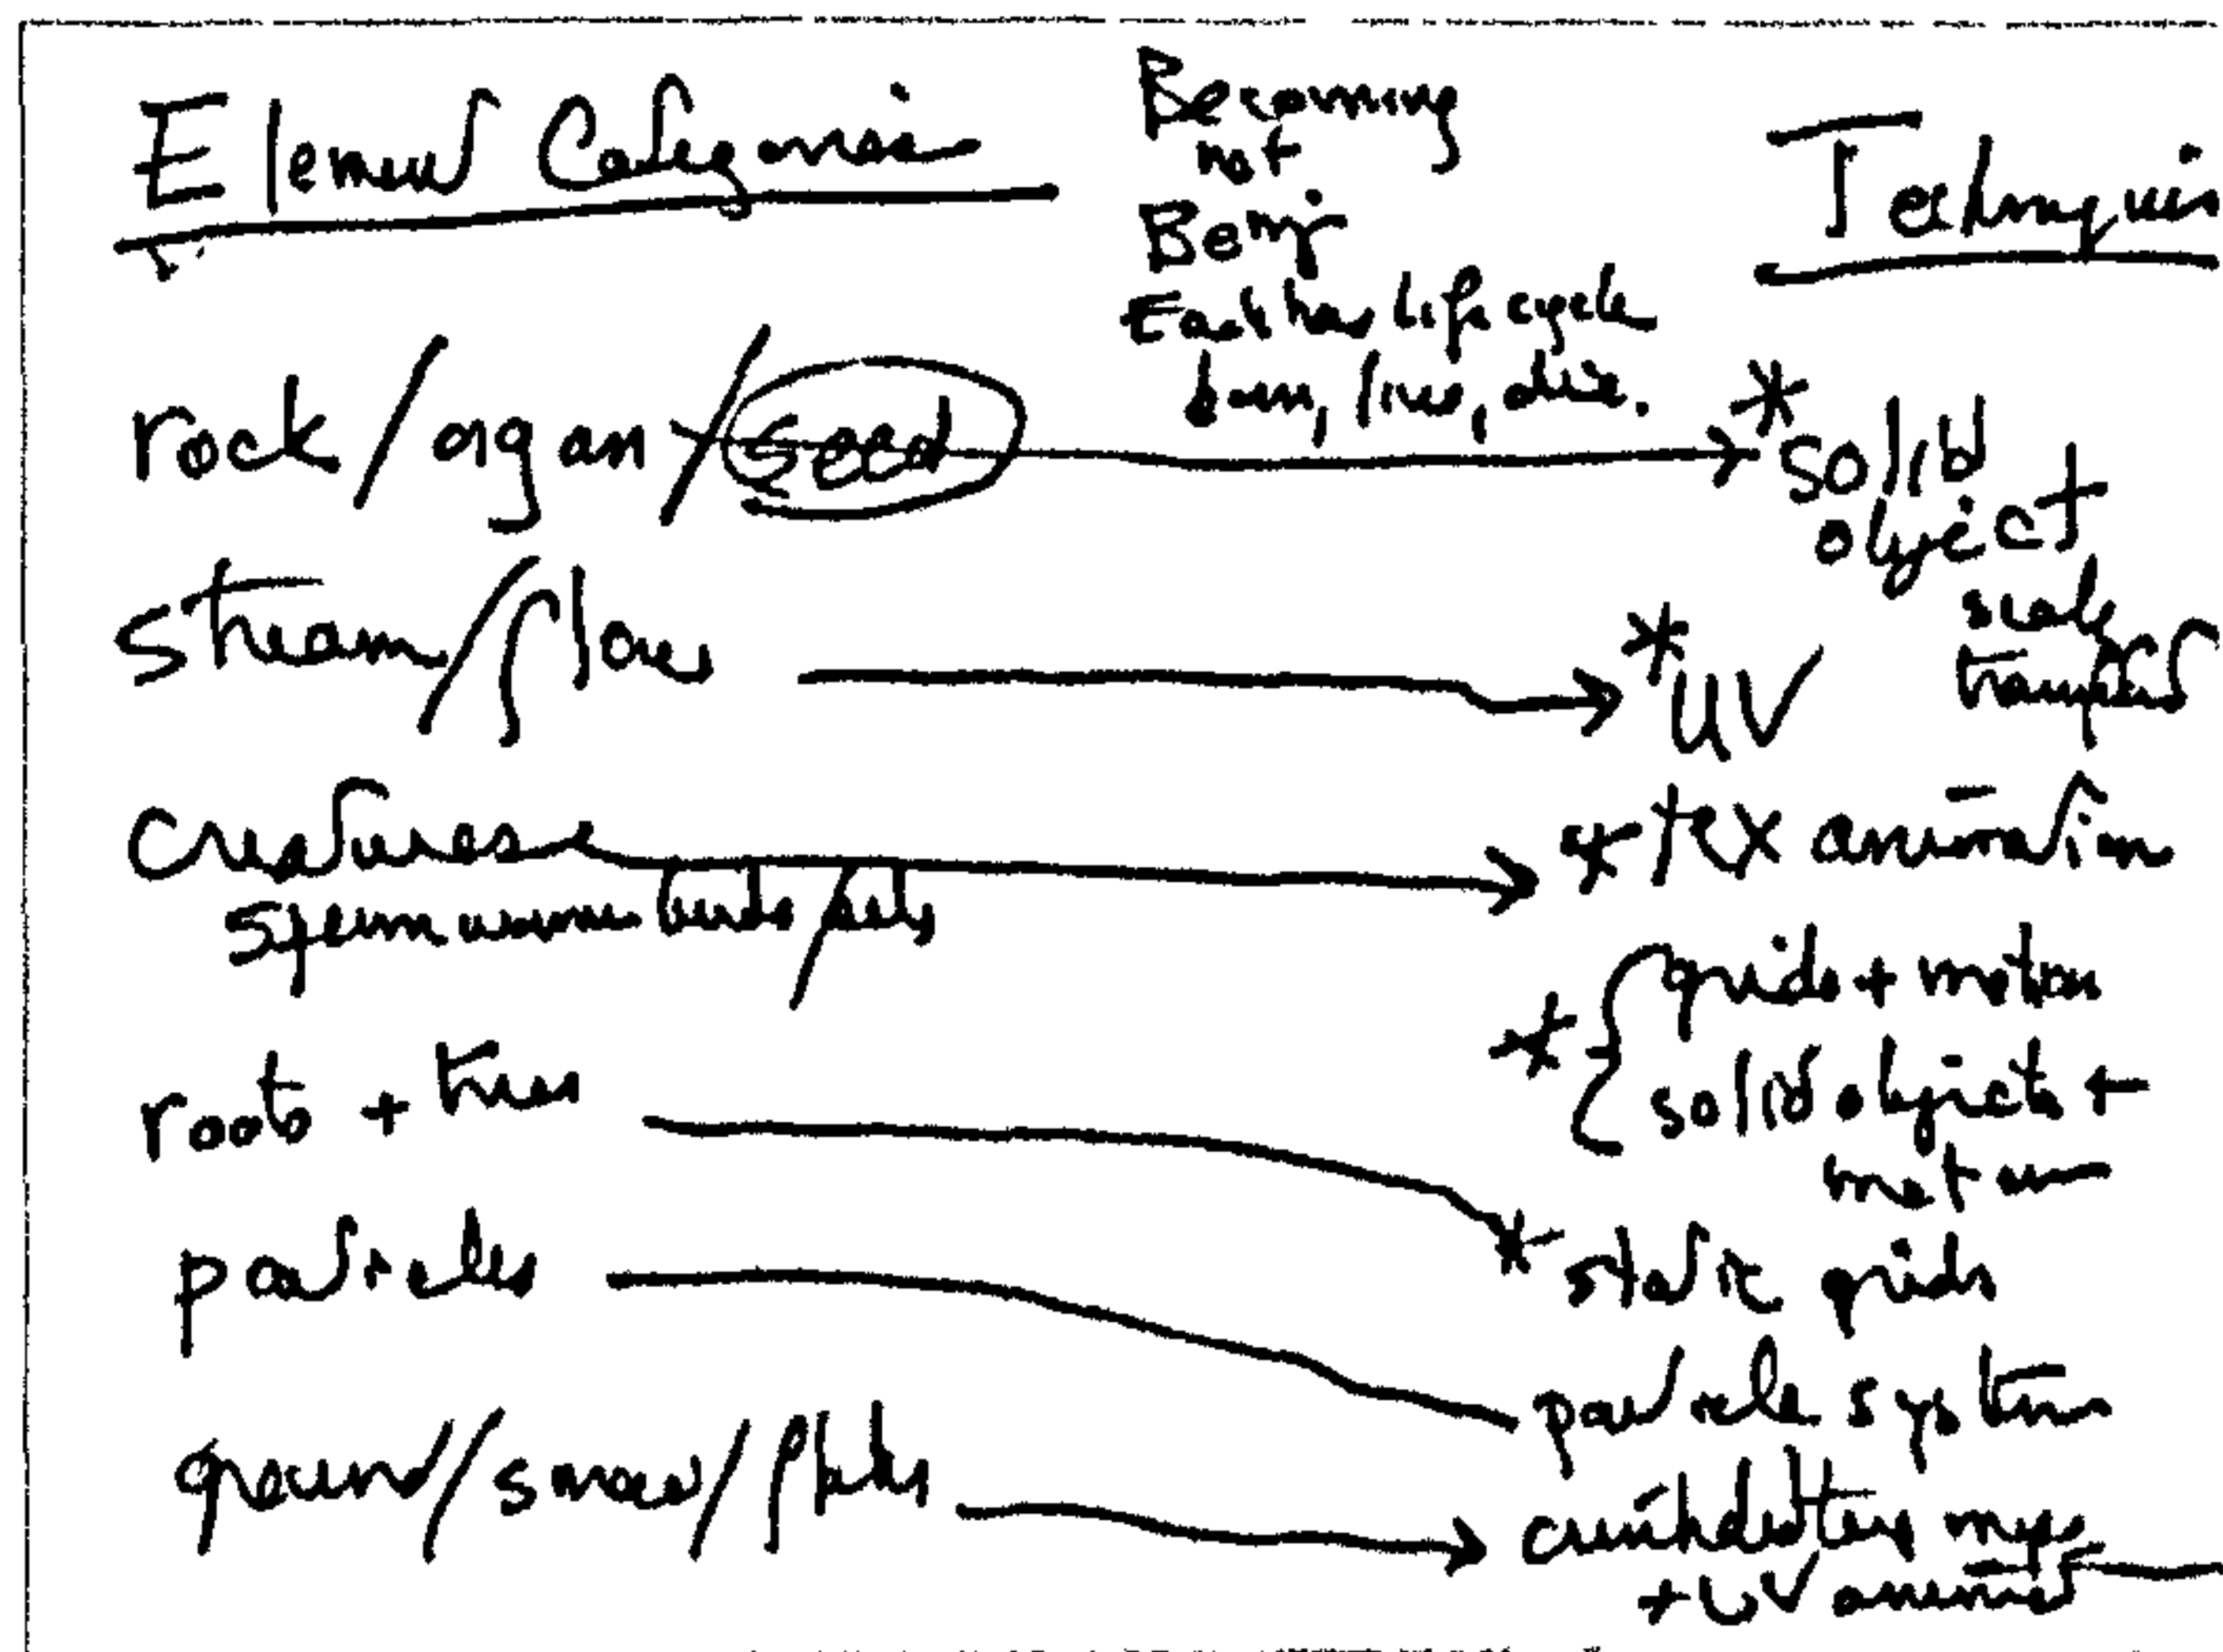 Element Categories
Becoming
not
Being
Each has life cycle
born, lives, dies.
Techniques
rock/organ/seed
* solid
object
scale
transparent
stream/flow
* UV
creatures
* tex animation
sperm birds/
* { grids + motion
solid objects +
motion
roots + trees
* static grids
particles
particle systems
ground/snow/
+ UV animat